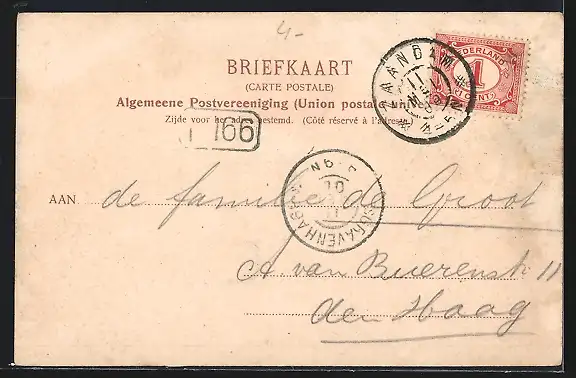 4-
BRIEFKAART
(CARTE POSTALE)
Algemeene Postvereeniging (Union postale universelle)
Zijde voor het adres bestemd. (Côté réservé à l'adresse)
NEDERLAND
1
CENT
ZAANDAM
166
'S GRAVENHAGE
AAN de familie de Groot
A. van Buerenstr 11
den Haag